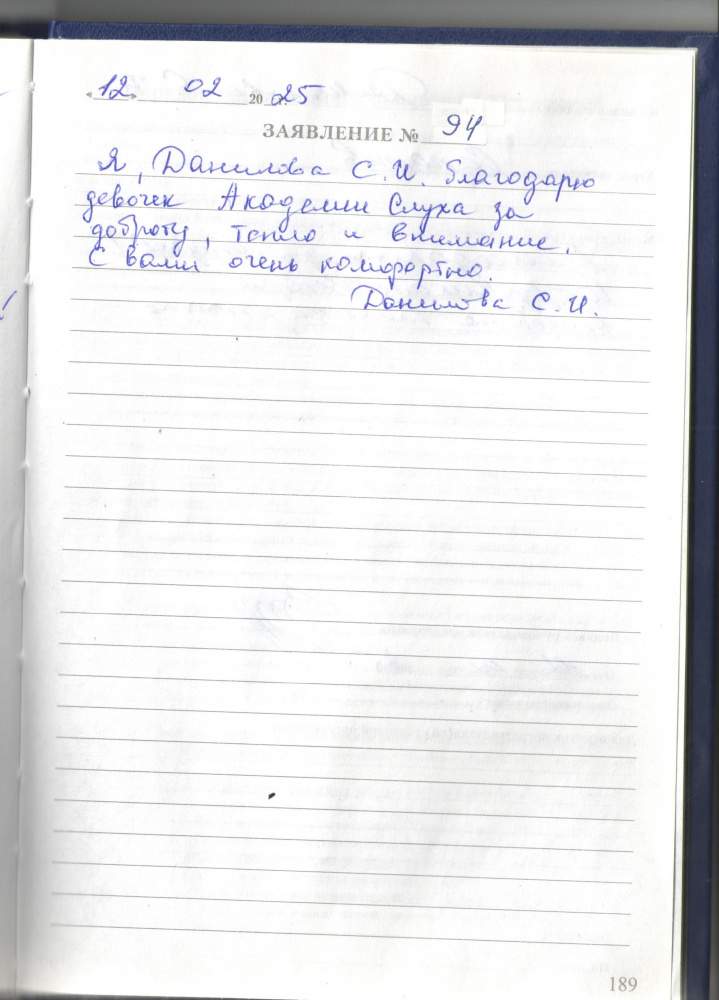 «12» 02 2025
ЗАЯВЛЕНИЕ № 94
Я, Данилова С.И. благодарю
девочек Академии Слуха за
доброту, тепло и внимание.
С вами очень комфортно.
Данилова С.И.
189